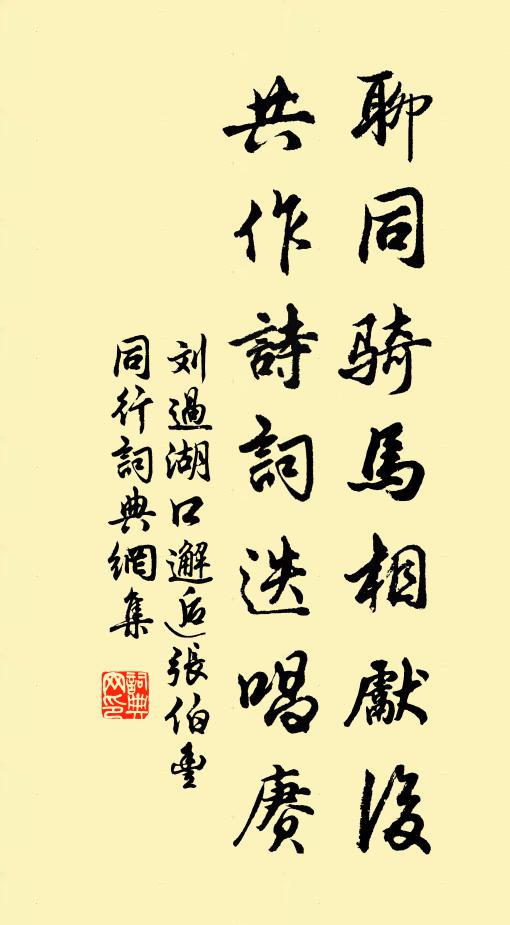 聊同騎馬相獻後
共作詩詞迭唱賡
刘過湖口邂逅張伯豐
同行詞典網集
詞典网印